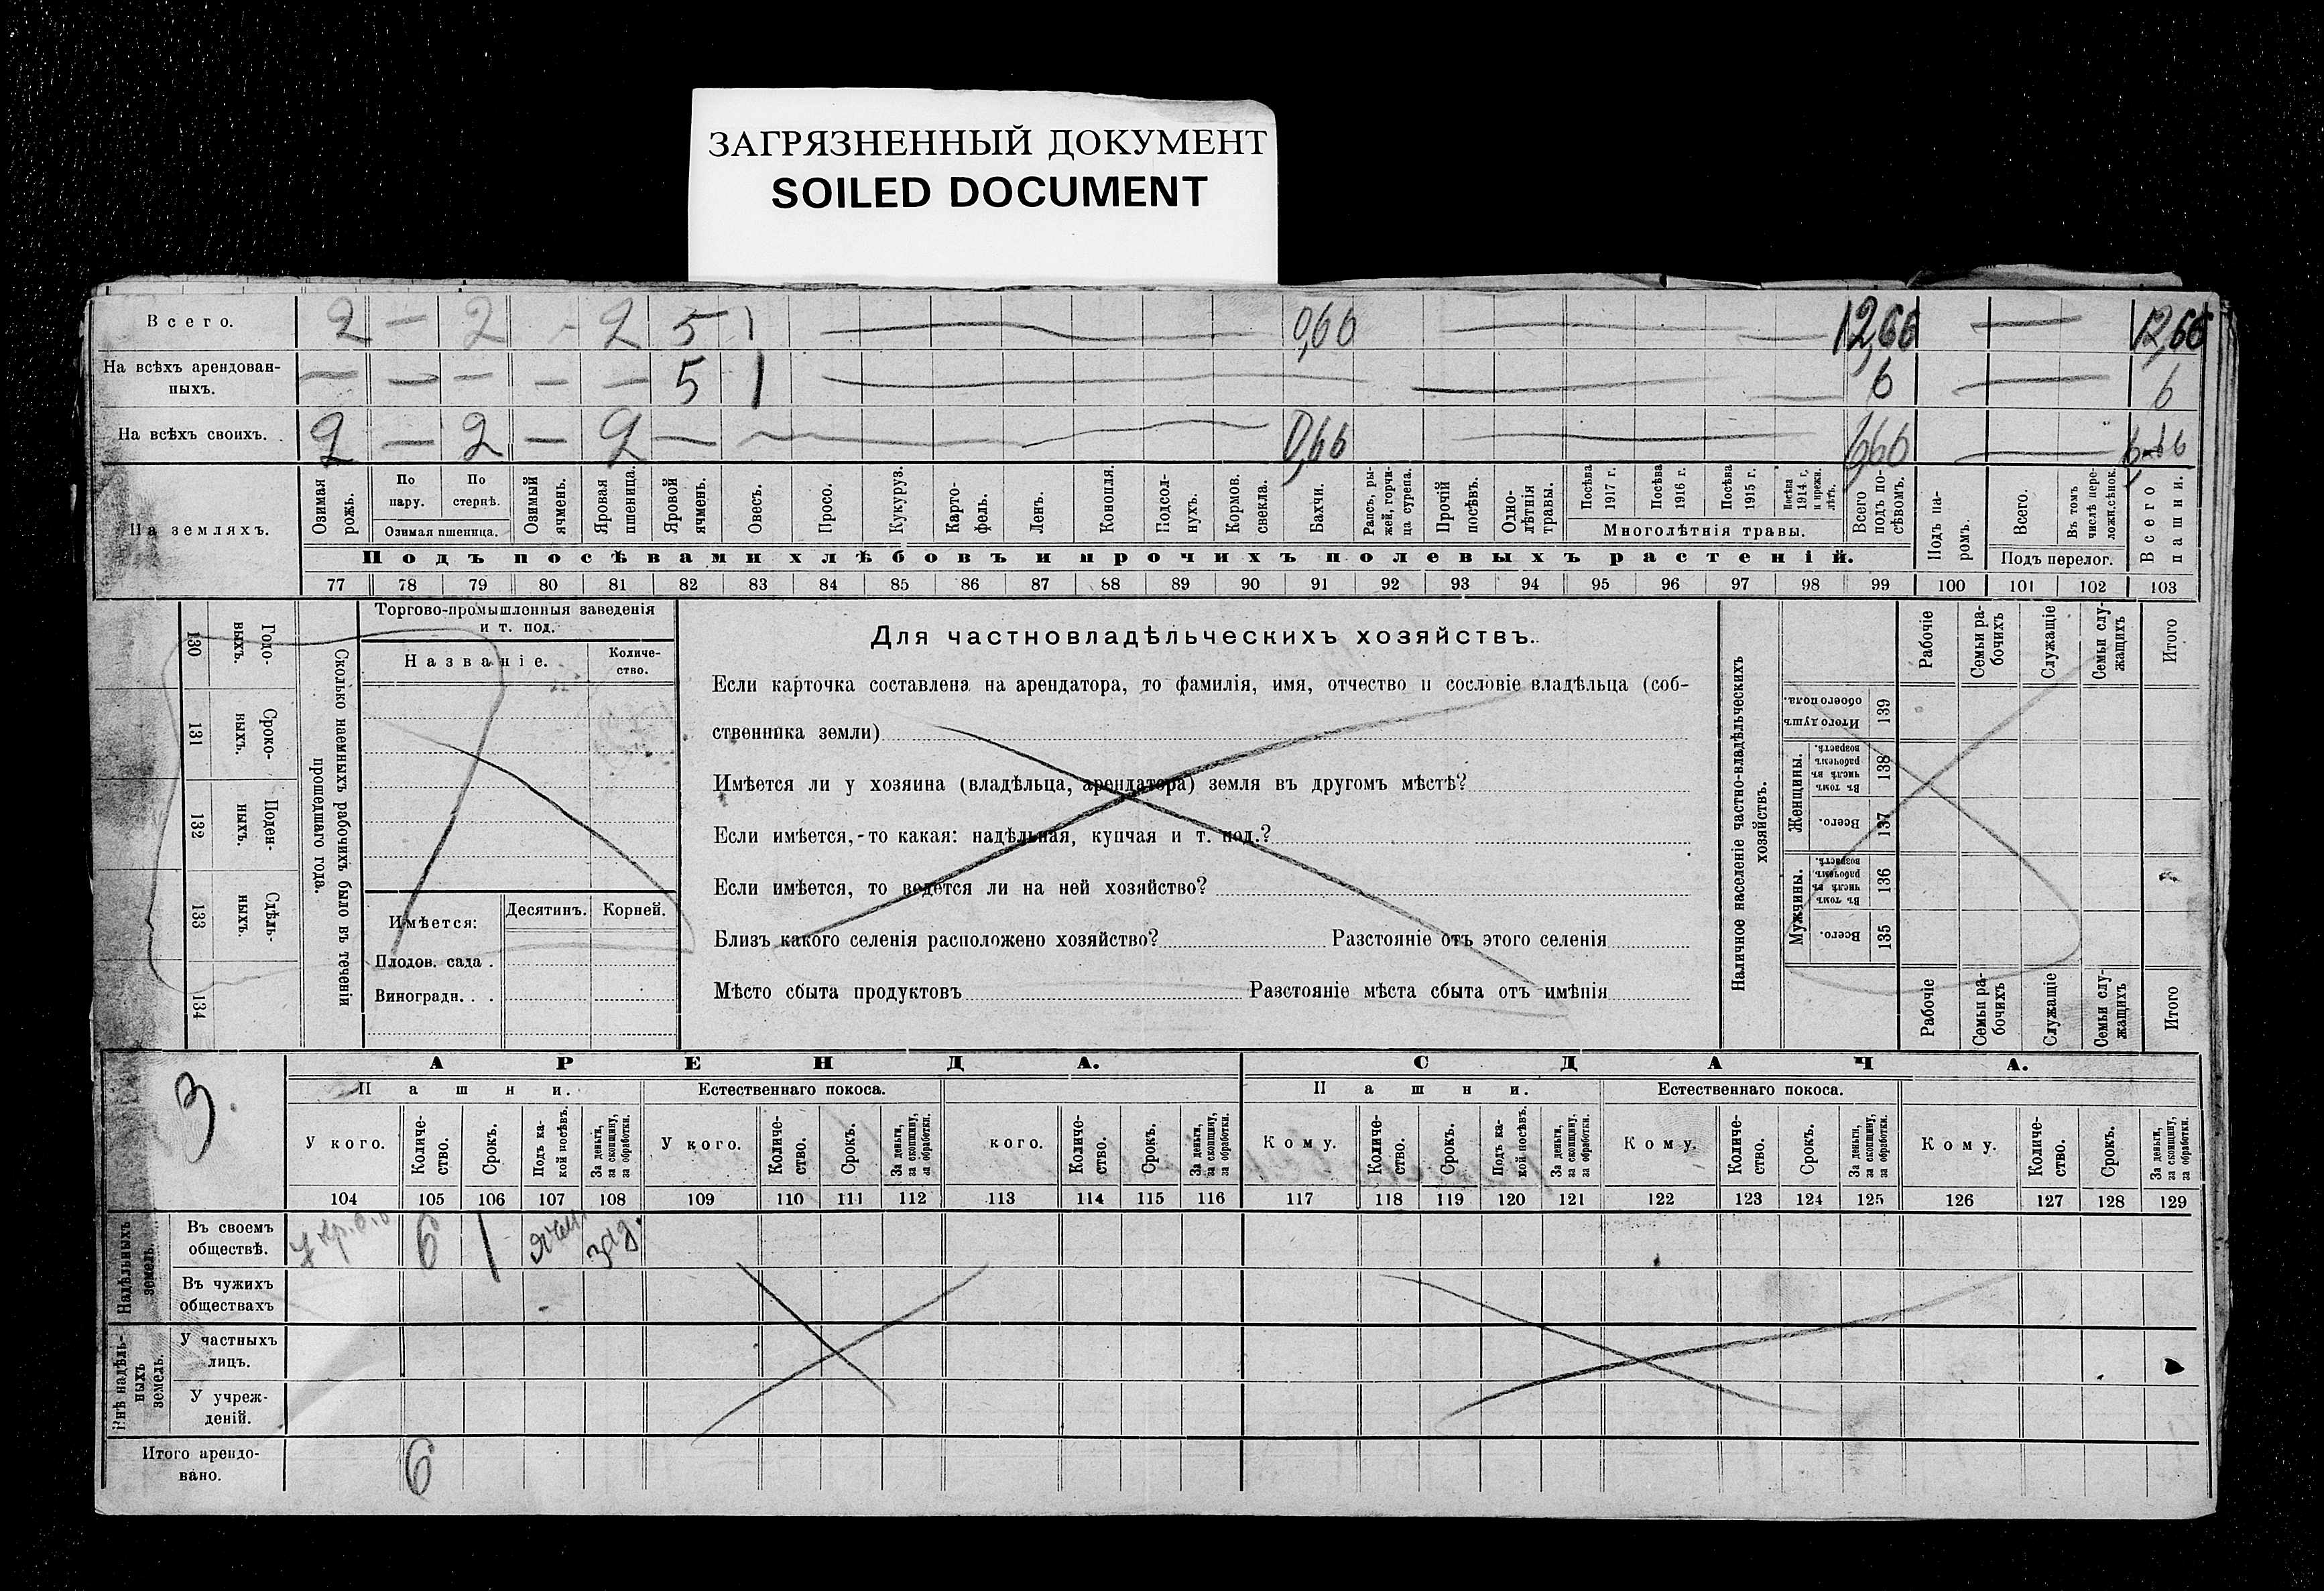 ЗАГРЯЗНЕННЫЙ ДОКУМЕНТ
SOILED DOCUMENT
Всего. 2 — 2 - 2 5 1 — 0,66 — 12,66 — 12,66
На всѣхъ арендован-
ныхъ. — — — — — 5 1 — — 6 — 6
На всѣхъ своихъ. 2 — 2 — 2 — — 0,66 — 6,66 —
На земляхъ.
Озимая рожь.
По пару.
По стернѣ.
Озимая пшеница.
Озимый ячмень.
Яровая пшеница.
Яровой ячмень.
Овесъ.
Просо.
Кукуруз.
Карто-
фель.
Ленъ.
Конопля.
Подсол-
нухъ.
Кормов. свекла.
Бахчи.
Рапсъ, ры-
жей, горчи-
ца сурепа.
Прочій посѣвъ.
Одно-
лѣтнія травы.
Посѣва 1917 г.
Посѣва 1916 г.
Посѣва 1915 г.
Посѣва 1914 г. и прежн. лѣтъ.
Многолѣтнія травы.
Всего подъ по-
сѣвомъ.
Подъ па-
ромъ.
Всего.
Въ томъ числѣ пере-
ложн.сѣнок.
Подъ перелог.
Всего пашни.
Подъ посѣвами хлѣбовъ и прочихъ полевыхъ растеній.
77 78 79 80 81 82 83 84 85 86 87 88 89 90 91 92 93 94 95 96 97 98 99 100 101 102 103
130 Годо-
выхъ.
131 Сроко-
ныхъ.
132 Поден-
ныхъ.
133 Сдѣль-
ныхъ.
134
Сколько наемныхъ рабочихъ было въ теченіи
прошедшаго года.
Торгово-промышленныя заведенія
и т. под.
Названіе.
Количе-
ство.
Имѣется: Десятинъ. Корней.
Плодов. сада .
Виноградн. . .
Для частновладѣльческихъ хозяйствъ.
Если карточка составлена на арендатора, то фамилія, имя, отчество и сословіе владѣльца (соб-
ственника земли)
Имѣется ли у хозяина (владѣльца, арендатора) земля въ другомъ мѣстѣ?
Если имѣется,-то какая: надѣльная, купчая и т. под.?
Если имѣется, то ведется ли на ней хозяйство?
Близъ какого селенія расположено хозяйство? Разстояніе отъ этого селенія
Мѣсто сбыта продуктовъ Разстояніе мѣста сбыта отъ имѣнія
Наличное населеніе частно-владѣльческихъ
хозяйствъ.
Рабочіе
Семьи ра-
бочихъ
Служащіе
Семьи слу-
жащихъ
Итого
Итого душъ обоего пола. 139
Женщины.
Въ томъ числѣ въ рабочемъ возрастѣ. 138
Всего. 137
Мужчины.
Въ томъ числѣ въ рабочемъ возрастѣ. 136
Всего. 135
Рабочіе
Семьи ра-
бочихъ
Служащіе
Семьи слу-
жащихъ
Итого
3.
АРЕНДА. СДАЧА.
Пашни. Естественнаго покоса. Пашни. Естественнаго покоса.
У кого.
Количе-
ство.
Срокъ.
Подъ ка-
кой посѣвъ.
За деньги, за скопщину, за обработки.
У кого.
Количе-
ство.
Срокъ.
За деньги, за скопщину, за обработки.
кого.
Количе-
ство.
Срокъ.
За деньги, за скопщину, за обработки.
Кому.
Количе-
ство.
Срокъ.
Подъ ка-
кой посѣвъ.
За деньги, за скопщину, за обработки.
Кому.
Количе-
ство.
Срокъ.
За деньги, за скопщину, за обработки.
Кому.
Количе-
ство.
Срокъ.
За деньги, за скопщину, за обработки.
104 105 106 107 108 109 110 111 112 113 114 115 116 117 118 119 120 121 122 123 124 125 126 127 128 129
Надѣльныхъ земель.
Въ своемъ
обществѣ. 6 1 ячм.
Въ чужихъ
обществахъ
нѣ надѣль-
ныхъ
земель.
У частныхъ
лицъ.
У учреж-
деній.
Итого арендо-
вано. 6